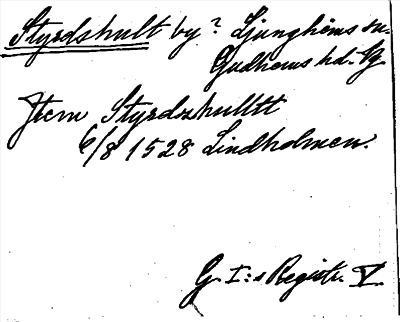 Styrdshult by? Ljunghems sn.
Gudhems hd. Vg.
Item Styrdzhulltt
6/8 1528 Lindholmen.
G. I:s Registr. V.